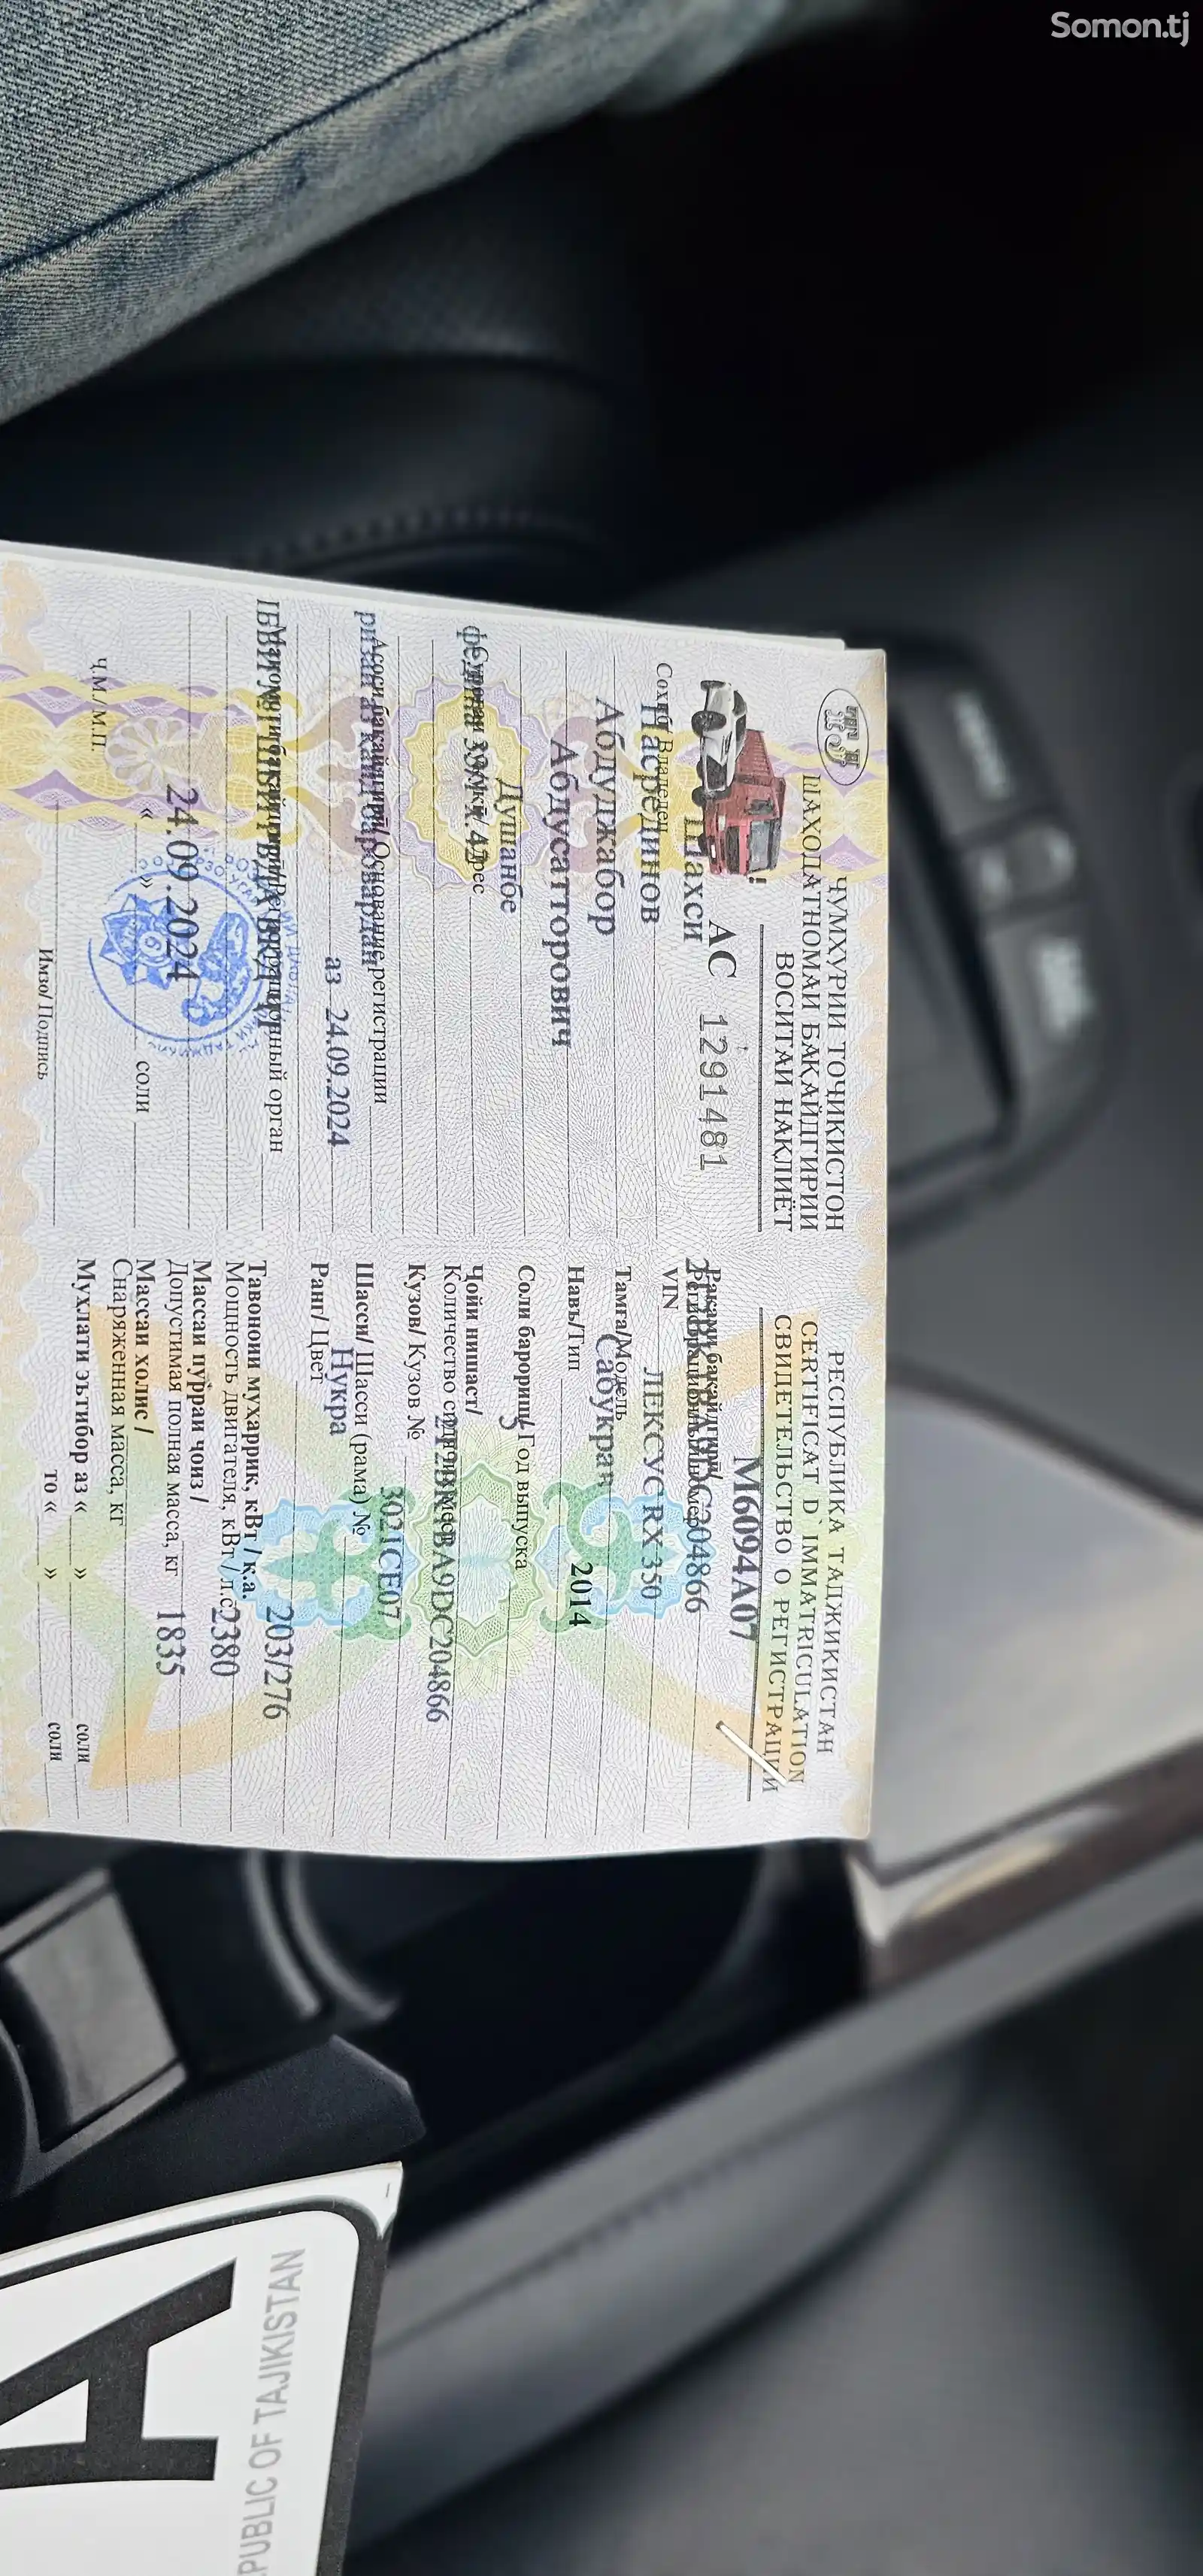 Somon.tj
ҶУМҲУРИИ ТОҶИКИСТОН
ШАҲОДАТНОМАИ БАҚАЙДГИРИИ
ВОСИТАИ НАҚЛИЁТ
АС 1291481
Шахси
Соҳиб/ Владелец
Насрединов
Абдуджабор
Абдусатторович
Душанбе
Асоси бақайдгирӣ/ Основание регистрации
аз 24.09.2024
24.09.2024
« » соли
Ҷ.М./ М.П.
Имзо/ Подпись
РЕСПУБЛИКА ТАДЖИКИСТАН
CERTIFICAT D`IMMATRICULATION
СВИДЕТЕЛЬСТВО О РЕГИСТРАЦИИ
М6094А07
Рақами бақайдгирӣ/
Регистрационный номер
VIN
Тамға/Модель ЛЕКСУС RX 350
Навъ/Тип Сабукрав
Соли барориш/ Год выпуска 2014
Ҷойи нишаст/ 5
Количество сидячих мест
Кузов/ Кузов № 2T2BK1BA9DC204866
Шасси/ Шасси (рама) № 302JCE07
Ранг/ Цвет Нуқра
Тавоноии муҳаррик, кВт / қ.а. 203/276
Мощность двигателя, кВт / л.с.
Массаи пурраи ҷоиз / 2380
Допустимая полная масса, кг
Массаи холис / 1835
Снаряженная масса, кг
Мухлати эътибор аз « » соли
то « » соли
A
PUBLIC OF TAJIKISTAN